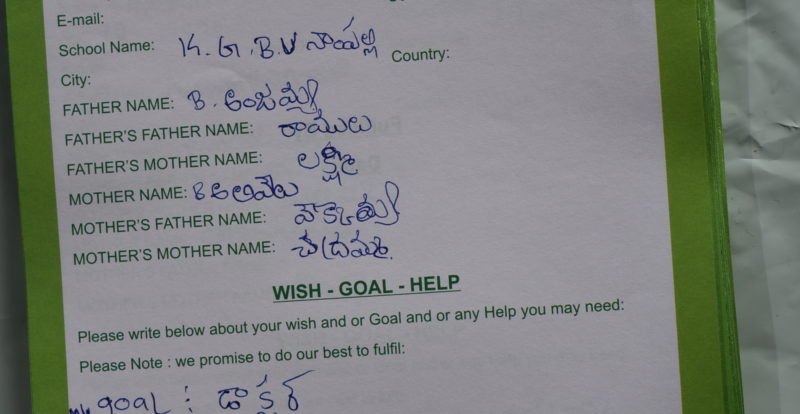 E-mail:
School Name: K.G.B.V నాంపల్లి
Country:
City:
FATHER NAME: B. అంజయ్య
FATHER'S FATHER NAME: రాములు
FATHER'S MOTHER NAME: లక్ష్మి
MOTHER NAME: B అలివేలు
MOTHER'S FATHER NAME:
MOTHER'S MOTHER NAME: చంద్రమ్మ
WISH - GOAL - HELP
Please write below about your wish and or Goal and or any Help you may need:
Please Note : we promise to do our best to fulfil:
goal : డాక్టర్